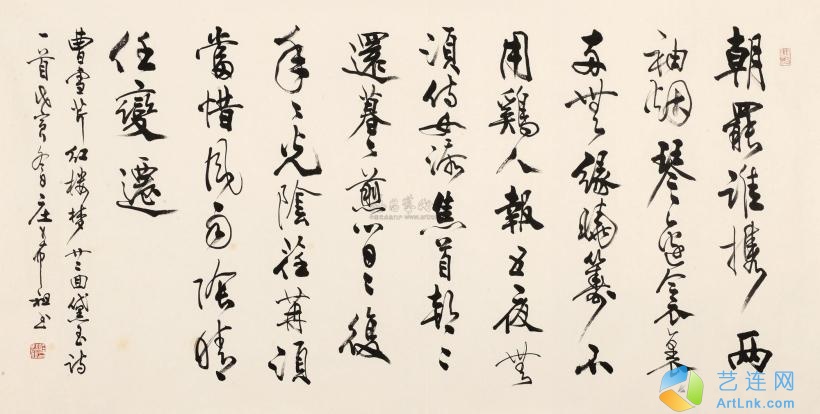 朝罷誰携兩
袖烟琴邊衾裏
兩無緣曉籌不
用鷄人報五夜無
須侍女添焦首朝〻
還暮〻煎心日〻復
年〻光陰荏苒須
當惜風雨陰晴
任變遷
曹雪芹红楼梦廿二回黛玉诗
一首戊寅冬日庄希祖书
艺连网
ArtLnk.com